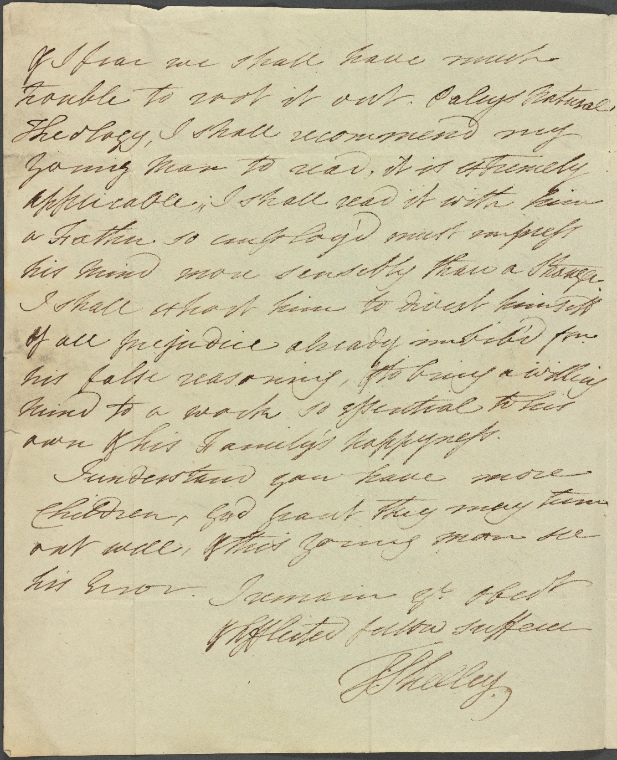 & I fear we shall have much
trouble to root it out. Paleys Natural
Theology, I shall recommend my
young Man to read, it is extremely
applicable, I shall read it with him
a Father so employ'd must impress
his Mind more sensibly than a Stranger
I shall exhort him to divest himself
of all prejudice already imbib'd from
his false reasoning, & to bring a willing
Mind to a work so essential to his
own & his Family's happyness.
I understand you have more
Children, God grant they may turn
out well, & this young man see
his Error.
I remain yr. obedt
& afflicted fellow sufferer
TShelley.